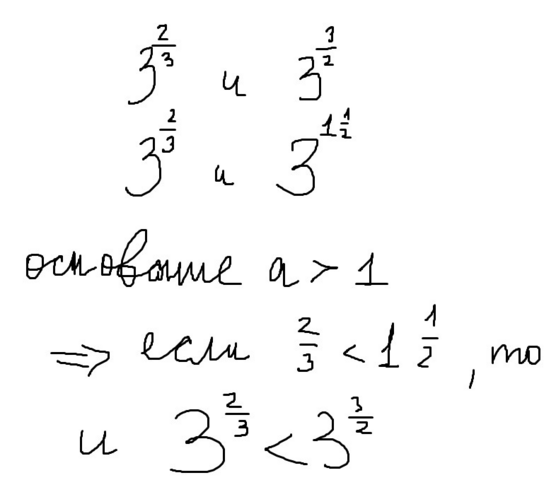 3^{\frac{2}{3}} и 3^{\frac{3}{2}}
3^{\frac{2}{3}} и 3^{1\frac{1}{2}}
основание a > 1
⇒ если \frac{2}{3} < 1\frac{1}{2}, то
и 3^{\frac{2}{3}} < 3^{\frac{3}{2}}